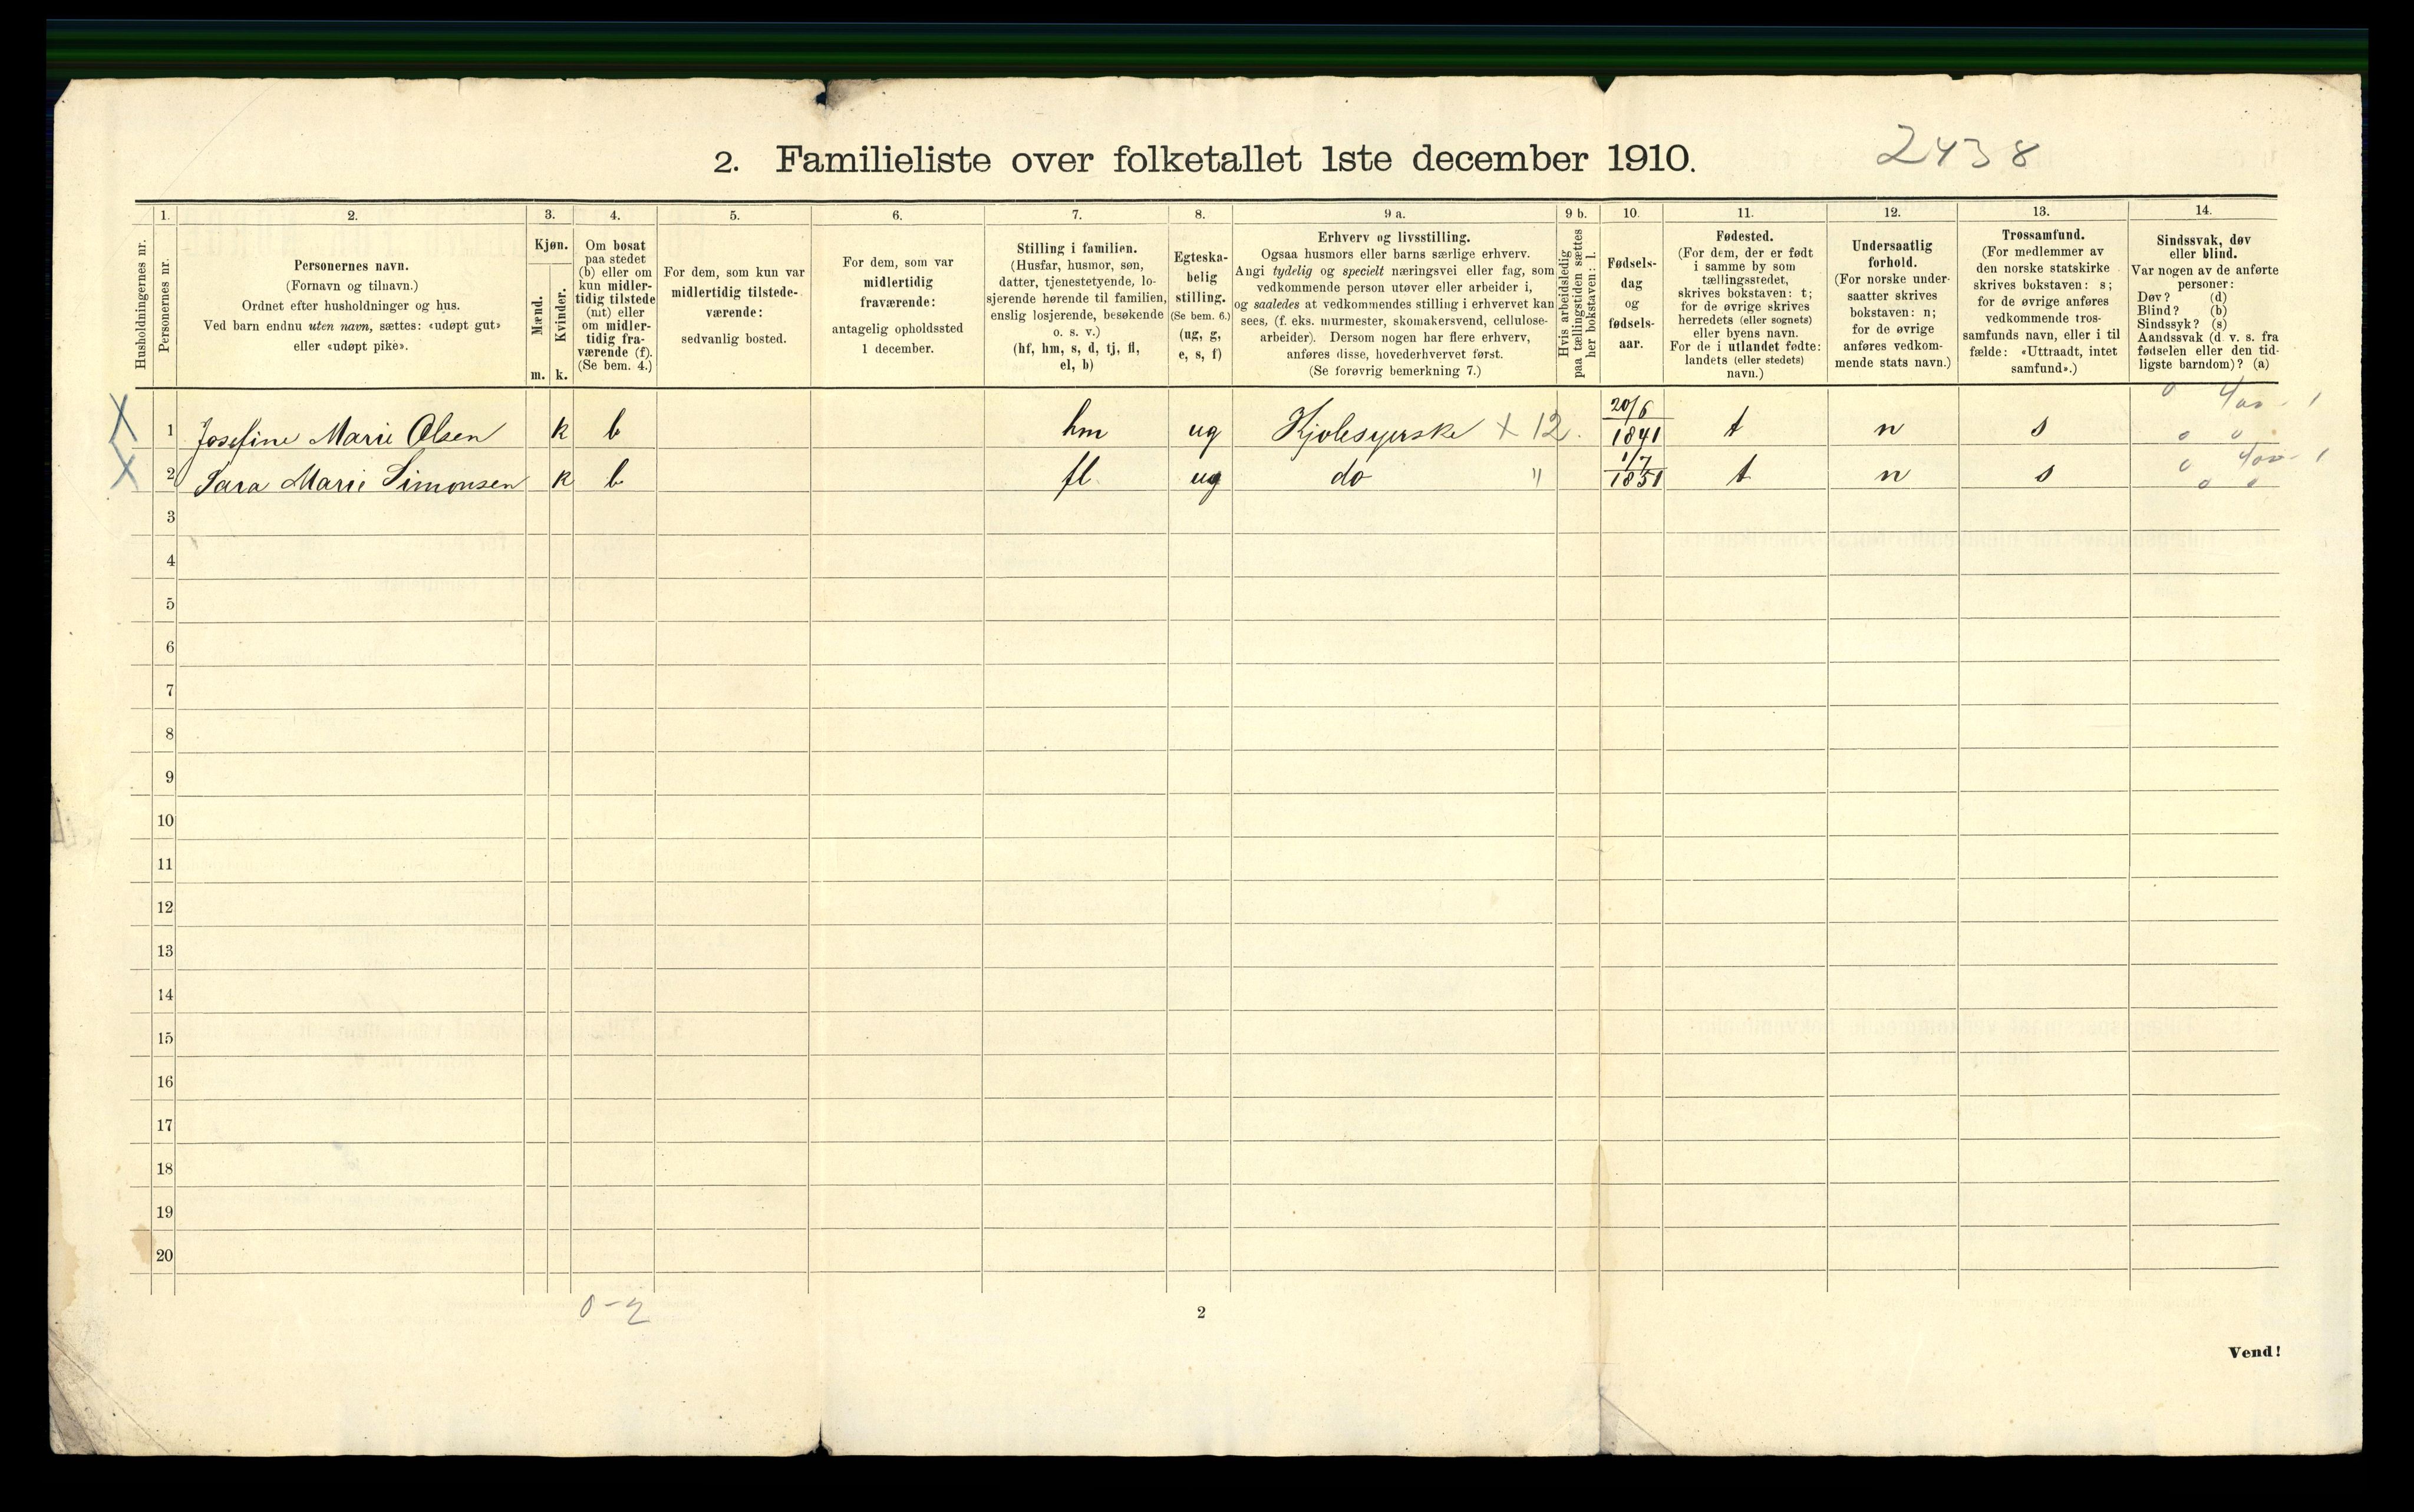 2. Familieliste over folketallet 1ste december 1910.
2438
1. 2. 3. 4. 5. 6. 7. 8. 9 a. 9 b. 10. 11. 12. 13. 14.
Husholdningernes nr.
Personernes nr.
Personernes navn.
(Fornavn og tilnavn.)
Ordnet efter husholdninger og hus.
Ved barn endnu uten navn, sættes: «udøpt gut»
eller «udøpt pike».
Kjøn.
Mænd.
Kvinder.
m. k.
Om bosat
paa stedet
(b) eller om
kun midler-
tidig tilstede
(mt) eller
om midler-
tidig fra-
værende (f).
(Se bem. 4.)
For dem, som kun var
midlertidig tilstede-
værende:
sedvanlig bosted.
For dem, som var
midlertidig
fraværende:
antagelig opholdssted
1 december.
Stilling i familien.
(Husfar, husmor, søn,
datter, tjenestetyende, lo-
sjerende hørende til familien,
enslig losjerende, besøkende
o. s. v.)
(hf, hm, s, d, tj, fl,
el, b)
Egteska-
belig
stilling.
(Se bem. 6.)
(ug, g,
e, s, f)
Erhverv og livsstilling.
Ogsaa husmors eller barns særlige erhverv.
Angi tydelig og specielt næringsvei eller fag, som
vedkommende person utøver eller arbeider i,
og saaledes at vedkommendes stilling i erhvervet kan
sees, (f. eks. murmester, skomakersvend, cellulose-
arbeider). Dersom nogen har flere erhverv,
anføres disse, hovederhvervet først.
(Se forøvrig bemerkning 7.)
Hvis arbeidsledig
paa tællingstiden sættes
her bokstaven: l.
Fødsels-
dag
og
fødsels-
aar.
Fødested.
(For dem, der er født
i samme by som
tællingsstedet,
skrives bokstaven: t;
for de øvrige skrives
herredets (eller sognets)
eller byens navn.
For de i utlandet fødte:
landets (eller stedets)
navn.)
Undersaatlig
forhold.
(For norske under-
saatter skrives
bokstaven: n;
for de øvrige
anføres vedkom-
mende stats navn.)
Trossamfund.
(For medlemmer av
den norske statskirke
skrives bokstaven: s;
for de øvrige anføres
vedkommende tros-
samfunds navn, eller i til
fælde: «Uttraadt, intet
samfund».)
Sindssvak, døv
eller blind.
Var nogen av de anførte
personer:
Døv? (d)
Blind? (b)
Sindssyk? (s)
Aandssvak (d. v. s. fra
fødselen eller den tid-
ligste barndom)? (a)
X 1 Josefine Marie Olsen k b hm ug Kjolesyerske X 12. 20/6 1841 t n s 0 400 - 1 0 0
X 2 Sara Marie Simonsen k b fl ug do " 1/7 1851 t n s 0 400 - 1 0 0
3
4
5
6
7
8
9
10
11
12
13
14
15
16
17
18
19
20
0-2
2
Vend!